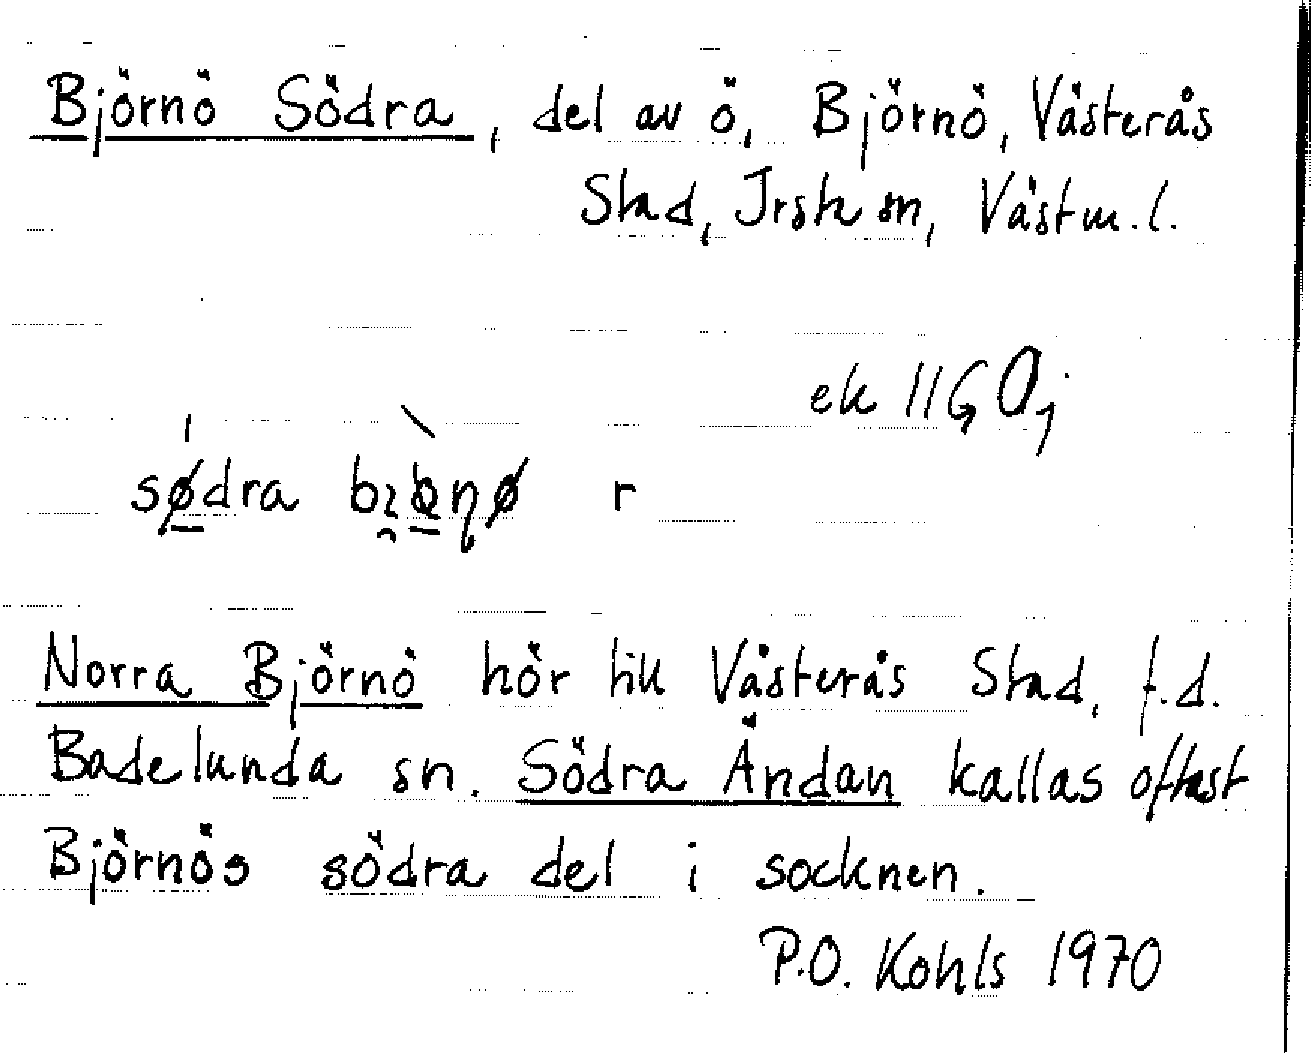 Björnö Södra, del av ö, Björnö, Västerås
Stad, Irsta sn, Västm.l.
ek 11G 0j
södra r
Norra Björnö hör till Västerås Stad, f.d.
Badelunda sn. Södra Ändan kallas oftast
Björnös södra del i socknen.
P.O. Kohls 1970